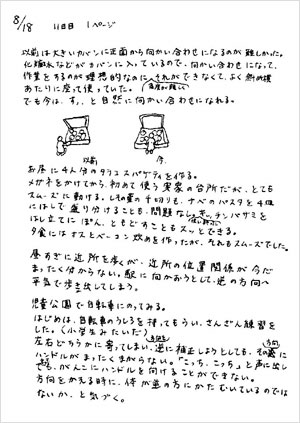 8/18 11日目 1ページ
以前は大きいカバンに正面から向かい合わせになるのが難しかった。
化粧水などがカバンに入っているので、向かい合わせになって、
作業をするのが理想的なのにそれができなくて、よく斜め横
あたりに座って使っていた。
でも今は、すっ、と自然に向かい合わせになれる。
以前 今
お昼に4人分のタラコスパゲティを作る。
メガネをかけてから、初めて使う実家の台所だが、とても
スムーズに動ける。しその葉の千切りも、ナベのパスタを4皿
にはしで盛り分けることも、問題なし。
はし立てにぽん、ともどすこともスッとできる。
夕食にはナスとベーコン炒めを作ったが、それもスムーズでした。
昼すぎに近所を歩くが、近所の位置関係が今だ
まったく分からない。駅に向かおうとして、逆の方向へ
平気で歩き出してしまう。
児童公園で自転車にのってみる。
はじめは、自転車のうしろを持ってもらい、さんざん練習を
した。(小学生みたいだ)
左右どちらかに寄ってしまい、逆に補正しようとしても、その
ハンドルがまったくまがらない。「こっち、こっち」と声に出し
ても、がんこにハンドルを向けることができない。
方向をかえる時に、体が並の方にかたむいているのでは
ないか、と気づく。